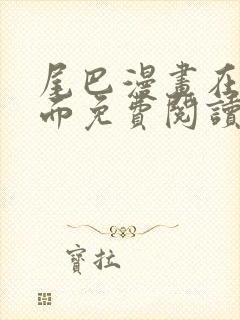 尾巴漫畫在
而免費閱讀
寶拉